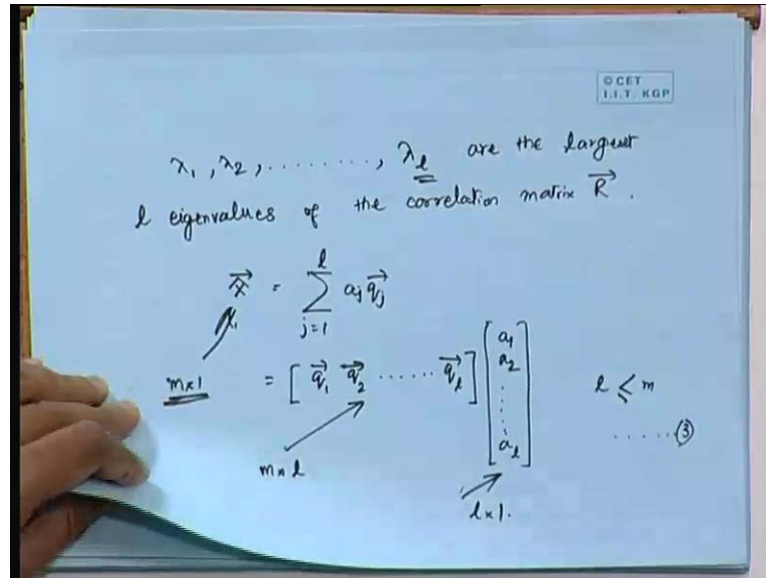 © CET
I.I.T. KGP
λ₁, λ₂, ........., λ_l are the largest
l eigenvalues of the correlation matrix R⃗.
x⃗ = \sum_{j=1}^{l} a_j q⃗_j
m×1 = [ q⃗₁ q⃗₂ ...... q⃗_l ] [ a₁ a₂ ..... a_l ] l ≤ m
..... ③
m×l
l×1.